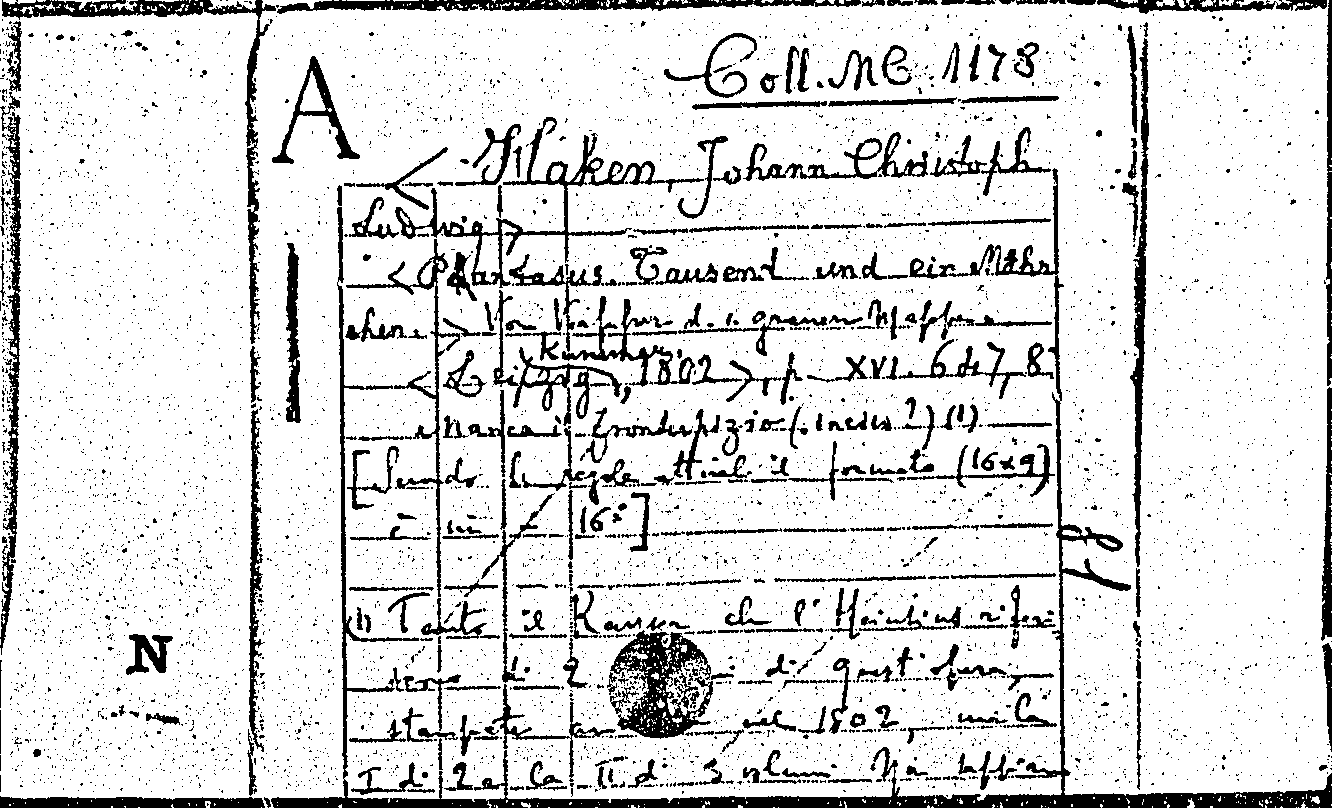 A
Coll. MC. 1178
< Haken, Johann Christoph
Ludwig >
< Phantasus. Tausend und ein Mähr
chen. > Von d. grauen Mappe.
Kummer,
< Leipzig, 1802 >, p. XVI. 647, 8°
Manca il frontespizio (. inciso ?) (1)
[Secondo le regole attuali il formato (16x9)
è in - 16°]
(1) Tanto il Kayser che l' Heinsius riferi
scono di 2 di quest'opera,
stampate nel 1802, una la
I di 2 e la II di 3 volumi. Noi abbiamo
18
N